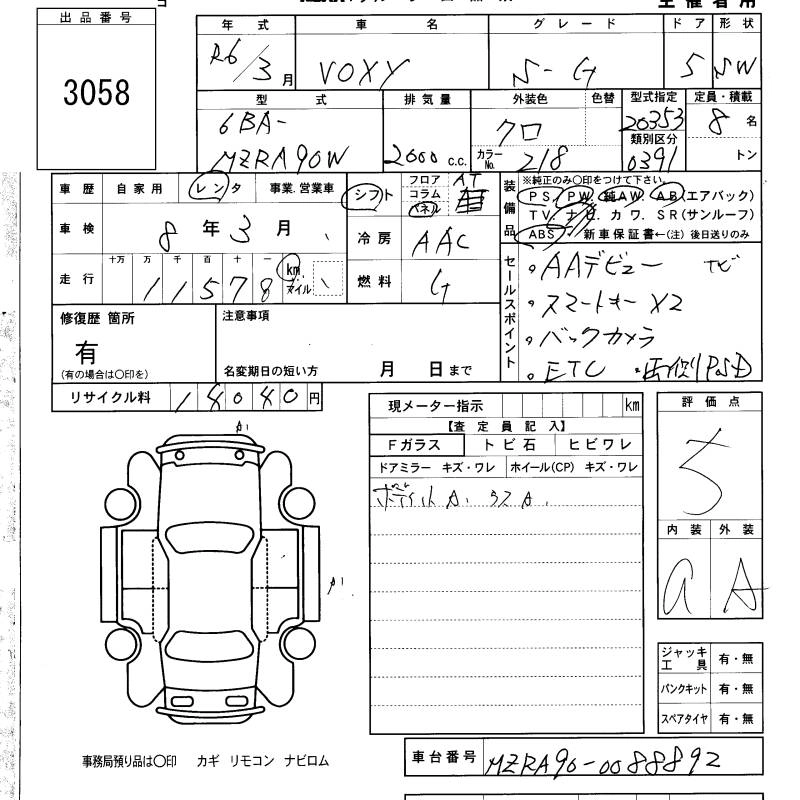 主催者用
出品番号
3058
年式 車名 グレード ドア 形状
R6/3月 VOXY S-G 5 SW
型式 排気量 外装色 色替 型式指定 定員・積載
6BA- クロ 20353 8名
類別区分
MZRA90W 2000c.c. カラーNo. 218 0391 トン
車歴 自家用 レンタ 事業.営業車
シフト フロア AT
コラム
パネル
装備品 ※純正のみ〇印をつけて下さい。
PS. PW. 純AW. AB(エアバック)
TV. ナビ. カワ. SR(サンルーフ)
ABS 新車保証書←(注) 後日送りのみ
車検 8年3月
冷房 AAC
走行 十万 万 千 百 十 一 km マイル
11578
燃料 G
セールスポイント
。AAデビュー ナビ
。スマートキー X2
。バックカメラ
。ETC 。両側PSD
修復歴 箇所
有
(有の場合は〇印を)
注意事項
名変期日の短い方 月 日まで
リサイクル料 14040円
現メーター指示 km
【査定員記入】
Fガラス トビ石 ヒビワレ
ドアミラー キズ・ワレ ホイール(CP) キズ・ワレ
A. A.
評価点
5
内装 外装
a A
A1
A1
ジャッキ工具 有・無
パンクキット 有・無
スペアタイヤ 有・無
事務局預り品は〇印 カギ リモコン ナビロム
車台番号 MZRA90-0088892